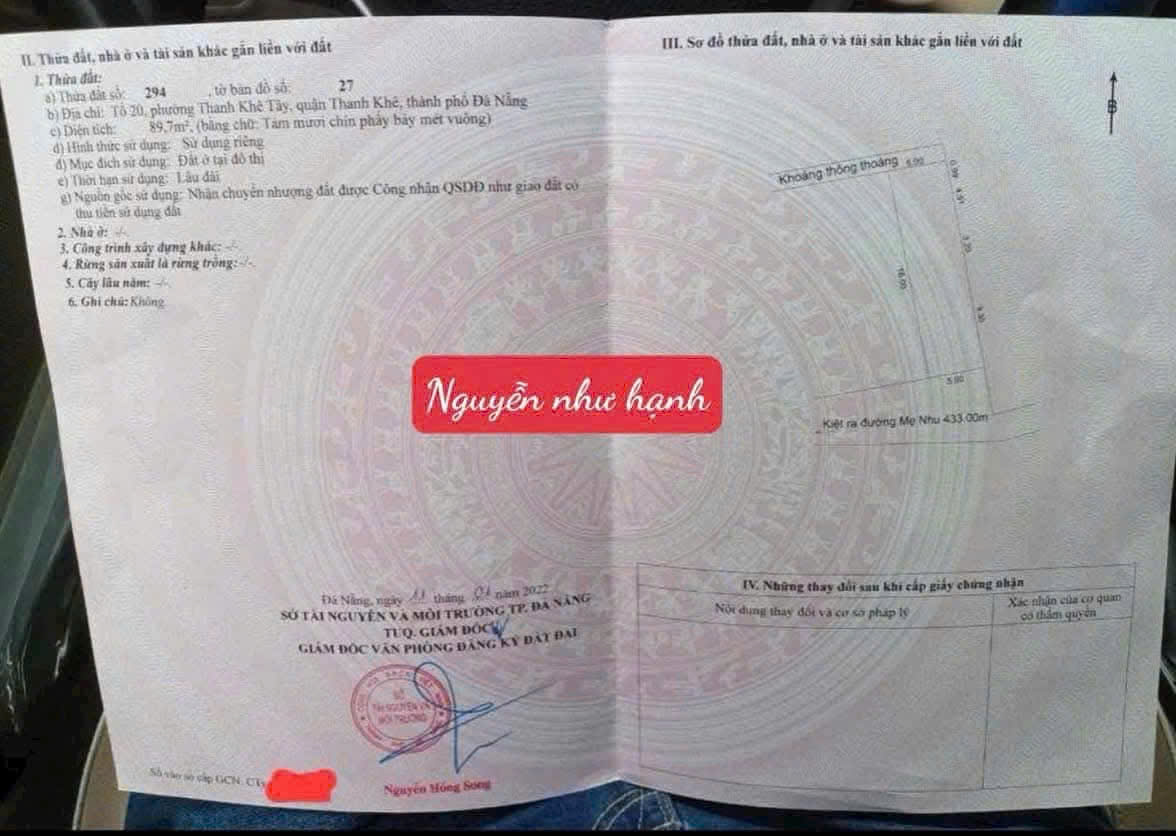 II. Thửa đất, nhà ở và tài sản khác gắn liền với đất
1. Thửa đất:
a) Thửa đất số: 294 , tờ bản đồ số: 27
b) Địa chỉ: Tổ 20, phường Thanh Khê Tây, quận Thanh Khê, thành phố Đà Nẵng
c) Diện tích: 89,7m², (bằng chữ: Tám mươi chín phẩy bảy mét vuông)
d) Hình thức sử dụng: Sử dụng riêng
đ) Mục đích sử dụng: Đất ở tại đô thị
e) Thời hạn sử dụng: Lâu dài
g) Nguồn gốc sử dụng: Nhận chuyển nhượng đất được Công nhận QSDĐ như giao đất có
thu tiền sử dụng đất
2. Nhà ở: -/-
3. Công trình xây dựng khác: -/-.
4. Rừng sản xuất là rừng trồng:-/-.
5. Cây lâu năm: -/-.
6. Ghi chú: Không
Nguyễn như hạnh
Đà Nẵng, ngày 11 tháng 01 năm 2022
SỞ TÀI NGUYÊN VÀ MÔI TRƯỜNG TP. ĐÀ NẴNG
TUQ. GIÁM ĐỐC
GIÁM ĐỐC VĂN PHÒNG ĐĂNG KÝ ĐẤT ĐAI
SỞ
TÀI NGUYÊN VÀ
MÔI TRƯỜNG
Nguyễn Hồng Song
Số vào sổ cấp GCN: CTs
III. Sơ đồ thửa đất, nhà ở và tài sản khác gắn liền với đất
B
Khoảng thông thoáng
5.00
0.89
4.51
3.20
18.00
9.30
5.00
Kiệt ra đường Mẹ Nhu 433.00m
IV. Những thay đổi sau khi cấp giấy chứng nhận
Nội dung thay đổi và cơ sở pháp lý
Xác nhận của cơ quan
có thẩm quyền